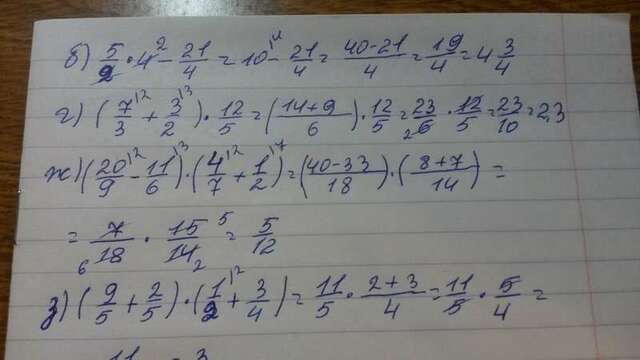 б) 5/2 · 4² - 21/4 = 10\4 - 21/4 = 40-21/4 = 19/4 = 4 3/4
г) (7/3\2 + 3/2\3) · 12/5 = (14+9/6) · 12/5 = 23/6 2 · 12/5 = 23/10 = 2,3
ж) (20/9\2 - 11/6\3) · (4/7\2 + 1/2\7) = (40-33/18) · (8+7/14) =
= 7/18 6 · 15/14 5 2 = 5/12
з) (9/5 + 2/5) · (1/2\2 + 3/4) = 11/5 · 2+3/4 = 11/5 · 5/4 =
11 = 3